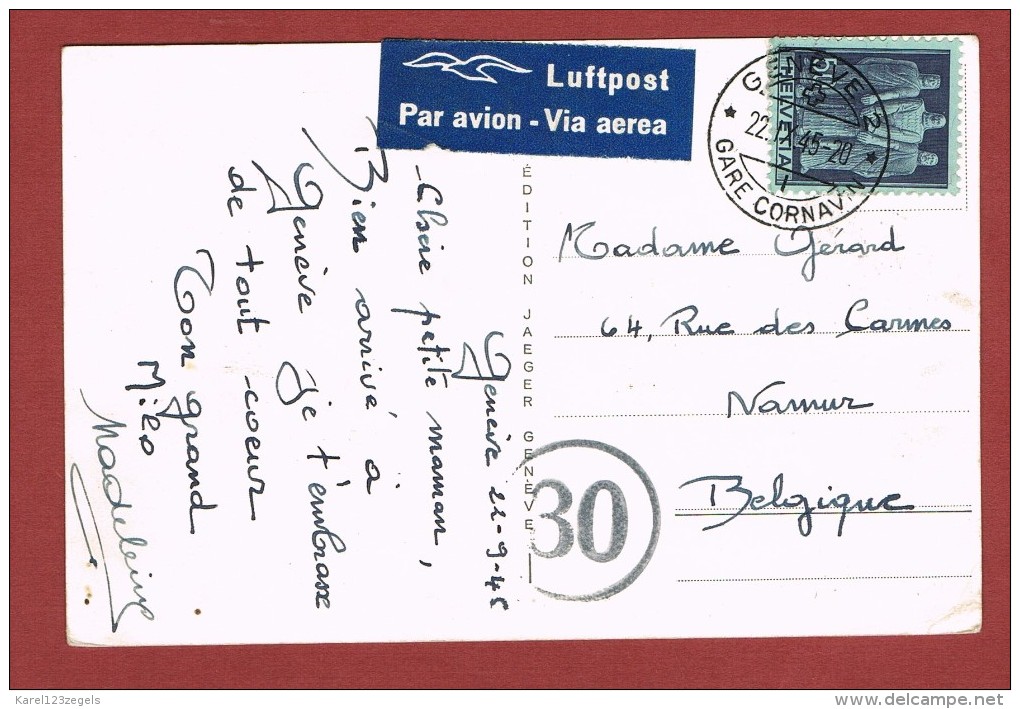 Luftpost
Par avion - Via aerea
GENÈVE 2
22.IX.45-20
GARE CORNAVIN
HELVETIA
Genève 22-9-45
Chère petite maman,
Bien arrivé à
Genève je t'embrasse
de tout coeur
Ton grand
Milo
Madeleine
ÉDITION JAEGER GENÈVE
30
Madame Gérard
64, Rue des Carmes
Namur
Belgique
Karel123zegels
www.delcampe.net